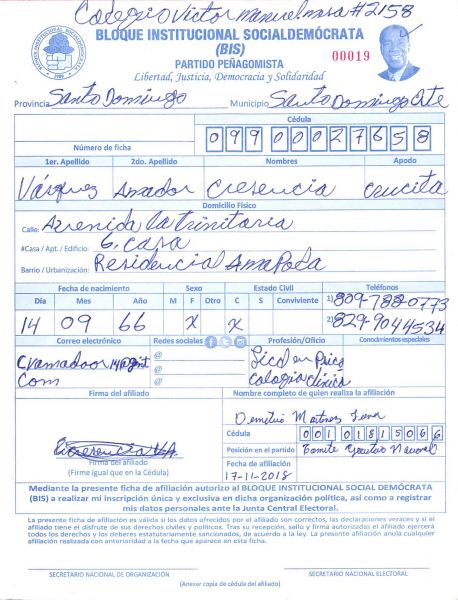 Colegio Victor Manuel mesa #2158
BLOQUE INSTITUCIONAL SOCIALDEMÓCRATA
(BIS)
PARTIDO PEÑAGOMISTA
00019
Libertad, Justicia, Democracia y Solidaridad
Provincia Santo Domingo Municipio Santo Domingo Ote
Cédula
Número de ficha 09900027658
1er. Apellido 2do. Apellido Nombres Apodo
Vásquez Amador Cresencia Crucita
Domicilio Físico
Calle: Avenida la trinitaria
#Casa / Apt. / Edificio: 6, casa
Barrio / Urbanización: Residencial Amapola
Fecha de nacimiento Sexo Estado Civil Teléfonos
Día Mes Año M F Otro C S Conviviente 1) 809-788-0773
14 09 66 X X 2) 829-9044534
Correo electrónico Redes sociales Profesión/Oficio Conocimientos especiales
@
@
@
Com
Licd en Psico
cología clínica
Firma del afiliado Nombre completo de quien realiza la afiliación
Demetrio Martinez
Cédula 00101815066
Posición en el partido Comite Ejecutivo Nacional
Firma del afiliado
(Firme igual que en la Cédula)
Fecha de afiliación
17-11-2018
Mediante la presente ficha de afiliación autorizo al BLOQUE INSTITUCIONAL SOCIAL DEMÓCRATA
(BIS) a realizar mi inscripción única y exclusiva en dicha organización política, así como a registrar
mis datos personales ante la Junta Central Electoral.
La presente ficha de afiliación es válida si los datos ofrecidos por el afiliado son correctos, las declaraciones veraces y si el
afiliado tiene el disfrute de sus derechos civiles y políticos. Tras su recepción, sello y firma autorizadas el afiliado ejercerá
todos los derechos y los deberes estatutariamente sancionados, de acuerdo a la ley. La presente afiliación anula cualquier
afiliación realizada con anterioridad a la fecha que aparece en esta ficha.
SECRETARIO NACIONAL DE ORGANIZACIÓN SECRETARIO NACIONAL ELECTORAL
(Anexar copia de cédula del afiliado)